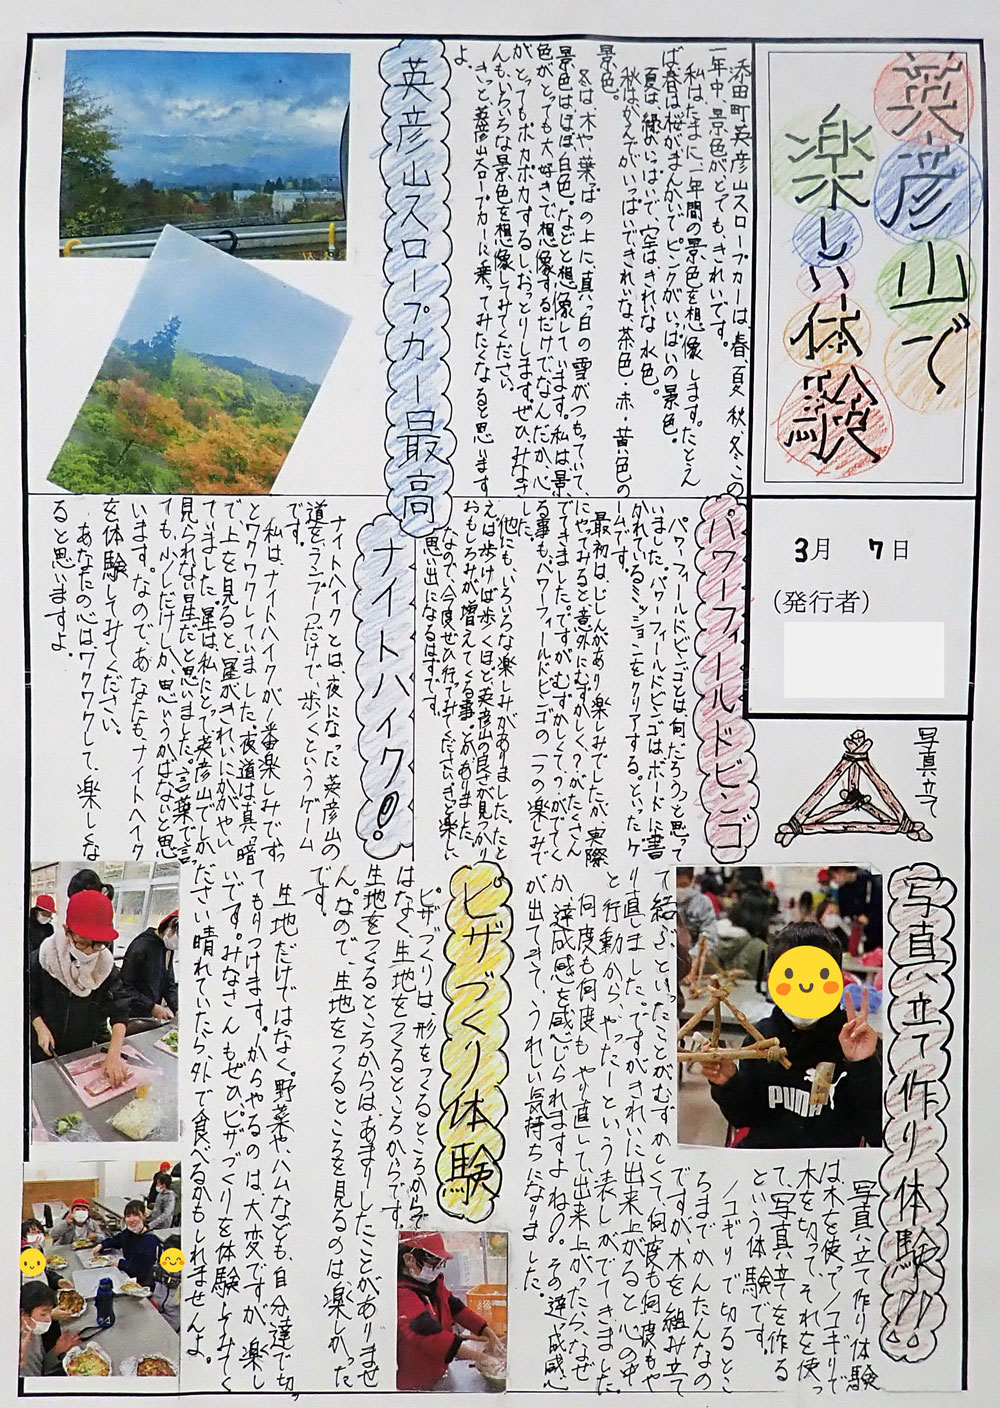 英彦山で
楽しい体験
3月 7日
(発行者)
添田町英彦山スロープカーは、春、夏、秋、冬、この
一年中、景色がとても、きれいです。
私はたまに、一年間の景色を想像します。たとえ
ば春は桜がまんかいでピンクがいっぱいの景色。
夏は、緑がいっぱいで、空はきれいな水色。
秋はかえでが、いっぱいで、きれいな、茶色・赤・黄色の
景色。
冬は、木や葉っぱの上に真っ白の雪がつもっていて、
景色はほぼ白色。などと想像しています。私は景
色がとっても大好きで、想像するだけで、なんだか、心
がとってもポカポカするし、おっとりします。ぜひ、みなさ
んも、いろいろな景色を想像してみてください。
きっと英彦山スロープカーに乗ってみたくなると思います
よ。
英彦山スロープカー最高
パワーフィールドビンゴ
パワーフィールドビンゴとは何だろう。と思って
いました。パワーフィールドビンゴは、ボードに書
かれているミッションをクリアする。といったゲ
ームです。
最初は、じしんがあり楽しみでしたが、実際
にやってみると意外にむずかしく?、がたくさん
でてきました。ですがむずかしくて?がでてく
る事も、パワーフィールドビンゴの一つの楽しみで
した。
他にも、いろいろな楽しみがありました。たと
えば歩けば歩くほど英彦山の良さが見つかり
おもしろみが増えてくる事。とかありました。
なので、今度ぜひ行ってみてください。きっと楽しい
思い出になるはずです。
ナイトハイク!
ナイトハイクとは、夜になった英彦山の
道をランプ一つだけで、歩くというゲーム
です。
私は、ナイトハイクが一番楽しみでずっ
とワクワクしていました。夜道は真っ暗
で上を見ると、星がきれいにかがやい
ていました。星は、私にとって英彦山でしか
見られない星だ。と思いました。言葉で言
ても、少しだけしか思いうかばないと思
います。なので、あなたも、ナイトハイク
を体験してみてください。
あなたの心は、ワクワクして、楽しくな
ると思いますよ。
写真立て
写真立て作り体験!!
写真立て作り体験
は木を使ってノコギリで
木を切って、それを使っ
て、写真立てを作る
という体験です。
ノコギリで切るとこ
ろまでかんたんなの
ですが、木を組み立て
て結ぶといったことがむずかしくて、何度も何度もや
り直しました。ですがきれいに出来上がると心の中
と行動から、やったーという表しがでてきました。
何度も何度もやり直して出来上がったら、なぜ
か達成感を感じられますよね。その達成感
が出てきて、うれしい気持ちになりました。
PUMA
ピザづくり体験
ピザづくりは、形をつくるところからで
はなく、生地をつくるところからです。
生地をつくるところからは、あまりしたことがありませ
ん。なので、生地をつくるところを見るのは楽しかった
です。
生地だけではなく、野菜や、ハムなども、自分達で切っ
てもりつけます。一からやるのは、大変ですが、楽し
いです。みなさんもぜひ、ピザづくりを体験してみてく
ださい。晴れていたら、外で食べるかもしれませんよ。